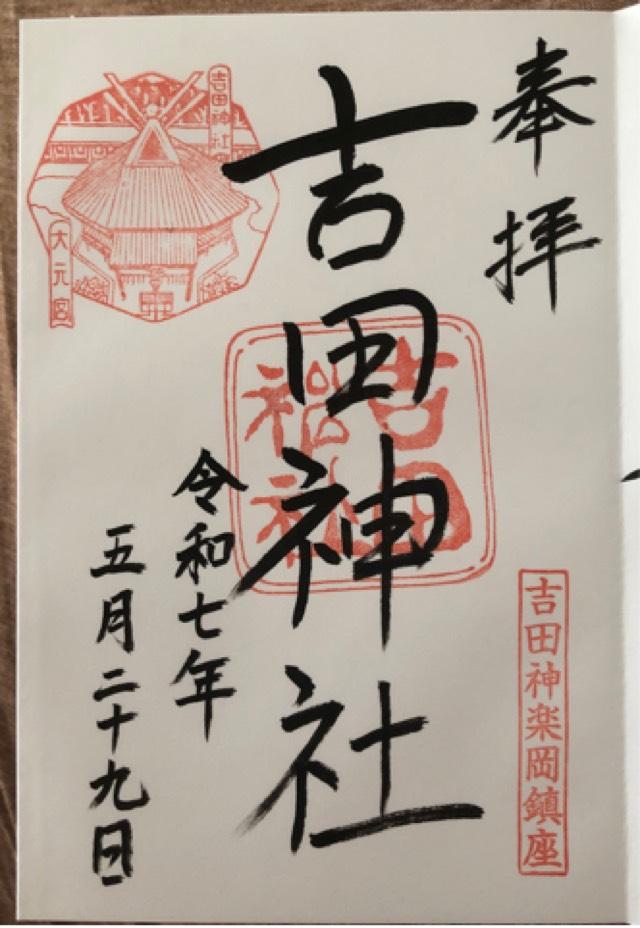 奉拝
吉田神楽岡鎮座
吉田神社
吉田
神社
吉田神社
大元宮
令和七年
五月二十九日